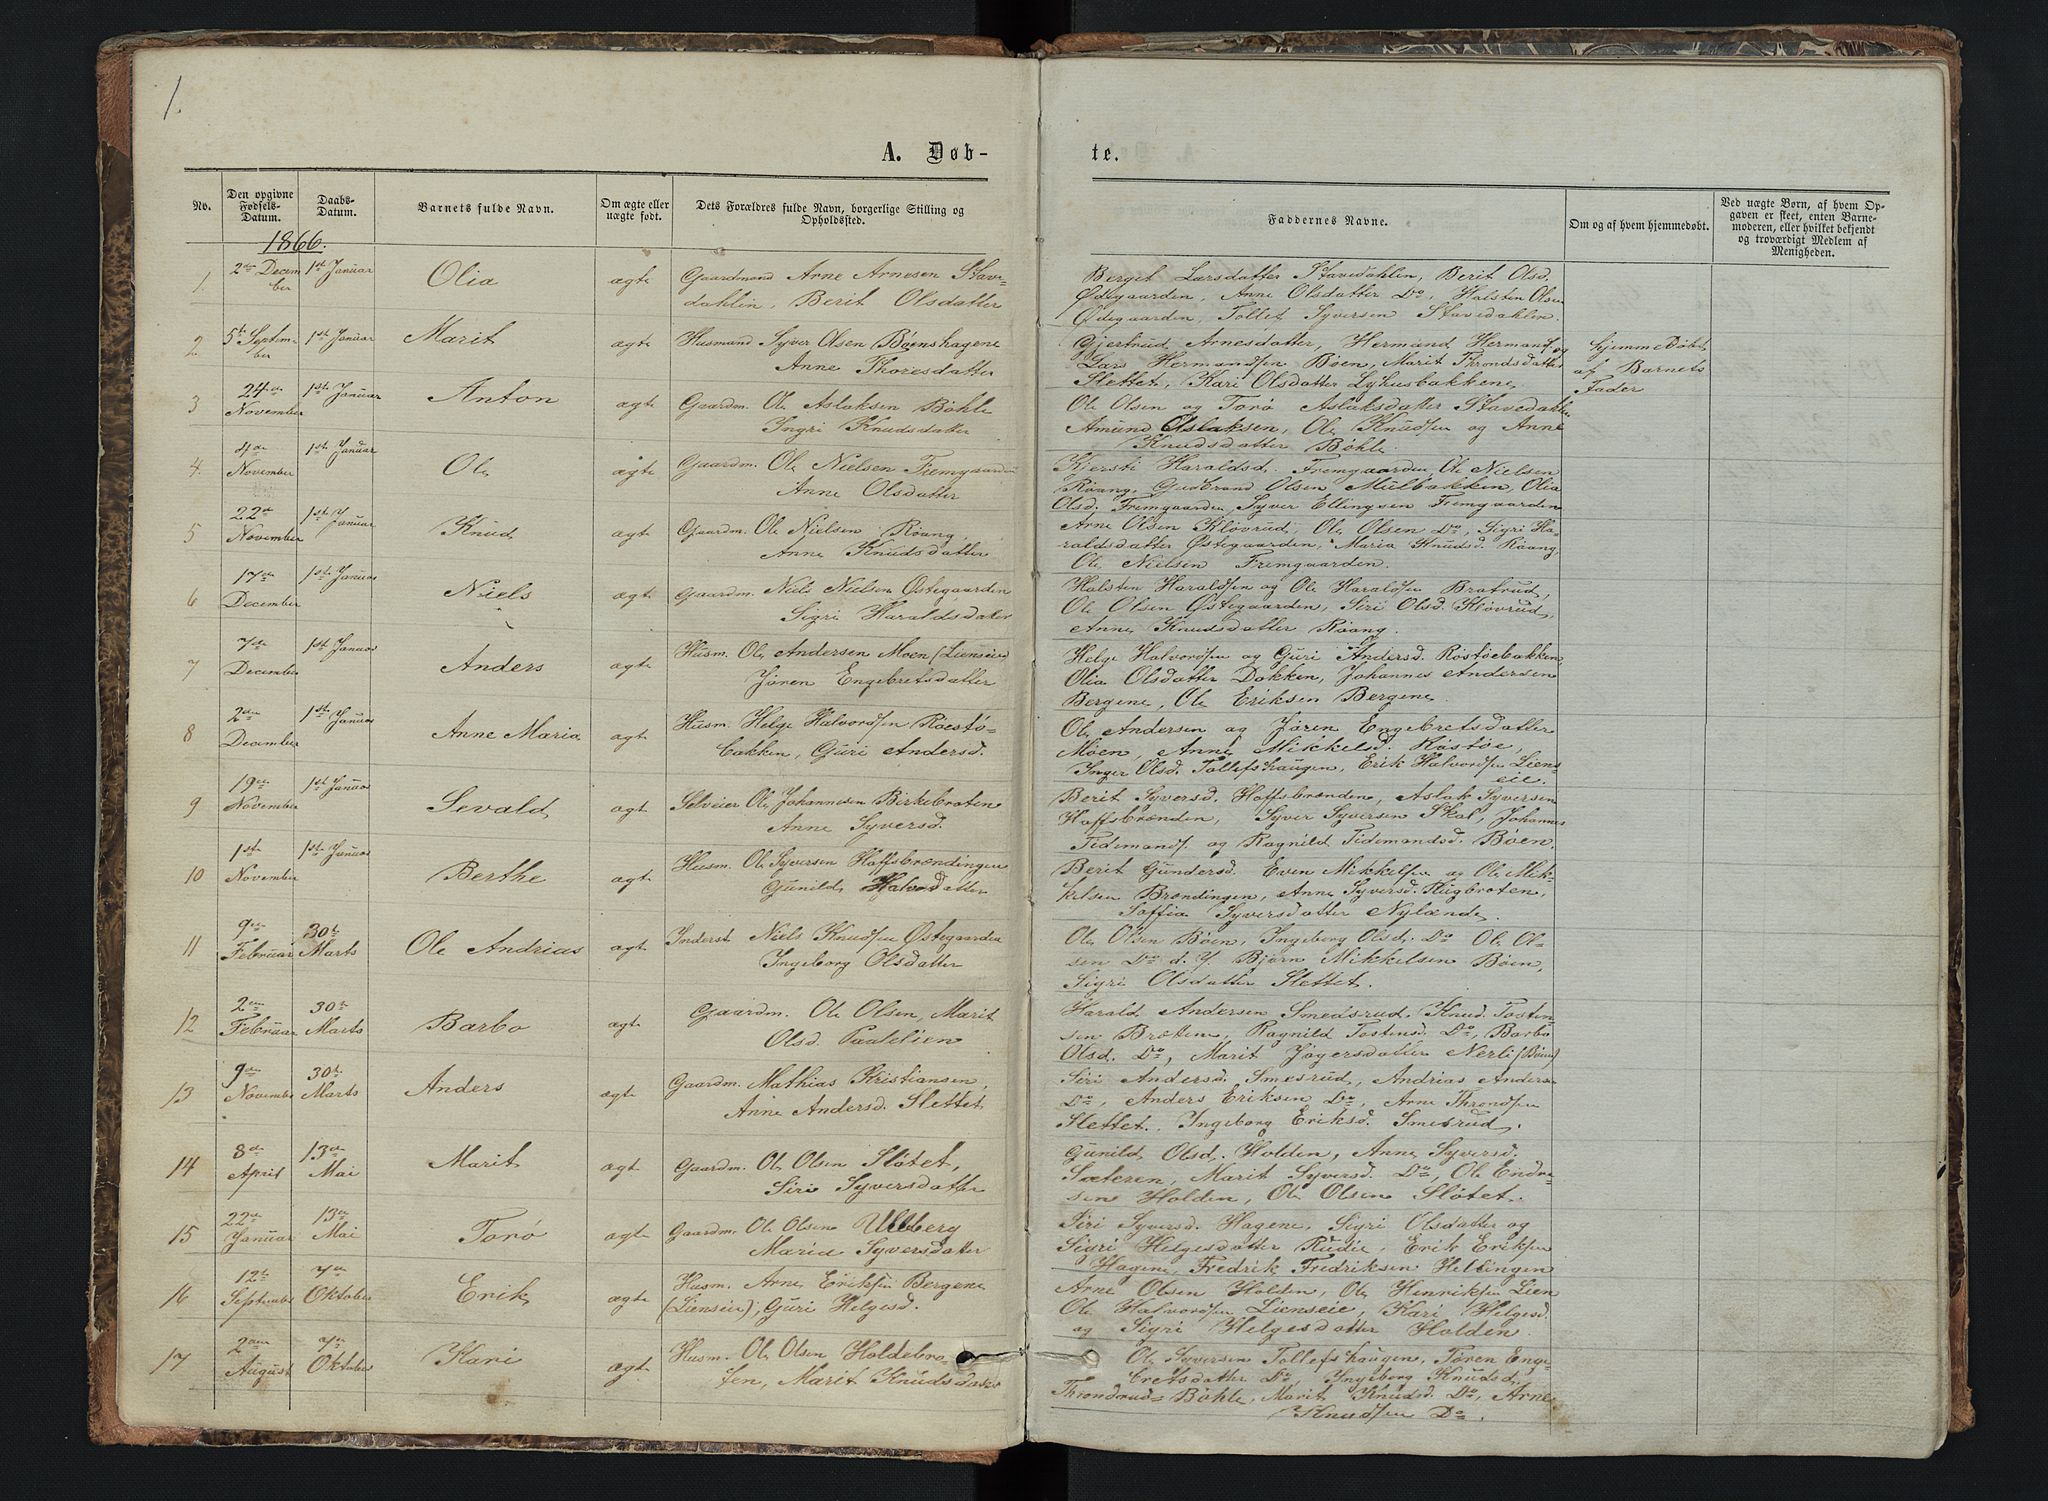 1.
A. Døb-
te.
No.
Den opgivne Fødsels-Datum.
Daabs-Datum.
Barnets fulde Navn.
Om ægte eller uægte født.
Dets Forældres fulde Navn, borgerlige Stilling og Opholdssted.
Faddernes Navne.
Om og af hvem hjemmedøbt.
Ved uægte Børn, af hvem Opgaven er skeet, enten Barnemoderen, eller hvilket bekjendt og troværdigt Medlem af Menigheden.
1866.
1. 2den December 1st Januar Olia ægte Gaardmand Arne Arnesen Stave-
dahlen, Berit Olsdatter
Berget Larsdatter Stavedahlen, Berit Olsd.
Ødegaarden, Anne Olsdatter Do, Halsten Olsen
Ødegaarden, Tollef Syversen Stavedahlen.
2 5te September 1st Januar Marit ægte Husmand Syver Olsen Bøenshagene
Anne Thoresdatter
Gjertrud Arnesdatter, Hermand Hermandsen og
Lars Hermandsen Bøen, Marit Throndsdatter
Slettet, Kari Olsdatter Lyhusbakkene
Hjemmedøbt
af Barnets
Fader
3 24de November 1st Januar Anton ægte Gaardm. Ole Aslaksen Bøhle
Ingri Knudsdatter
Ole Olsen og Torø Aslaksdatter Stavedahlen
Amund Aslaksen, Ole Knudsen og Anne
Knudsdatter Bøhle.
4. 4de November 1st Januar Ole ægte Gaardm. Ole Nielsen Fremgaarden
Anne Olsdatter
Kjersti Haraldsd. Fremgaarden, Ole Nielsen
Røang, Gudbrand Olsen Mulbakken, Olia
Olsd. Fremgaarden, Syver Ellingsen Fremgaarden
5 22de November 1st Januar Knud ægte Gaardm. Ole Nielsen Røang,
Anne Knudsdatter
Arne Olsen Kløvrud, Ole Olsen Do, Sigri Ha-
raldsdatter Østegaarden, Maria Knudsd. Røang
Ole Nielsen Fremgaarden.
6 17de December 1st Januar Niels ægte Gaardm. Niels Nielsen Østegaarden
Sigri Haraldsdatter
Halsten Haraldsen og Ole Haraldsen Bratrud,
Ole Olsen Østegaarden, Siri Olsd. Kløvrud,
Anne Knudsdatter Røang.
7 7de December 1st Januar Anders ægte Husm. Ole Andersen Moen (Lienseie)
Jøren Engebretsdatter
Helge Halvordsen og Guri Andersd. Røstøebakken
Olia Olsdatter Dokken, Johannes Andersen
Bergene, Ole Eriksen Bergene.
8 2den December 1st Januar Anne Maria ægte Husm. Helge Halvordsen Røestø-
bakken, Guri Andersd.
Ole Andersen og Jøren Engebretsdatter
Moen, Anne Mikkelsd. Røstøe,
Inger Olsd. Tollefshaugen, Erik Halvordsen Liens-
eie.
9 19de November 1st Januar Sevald ægte Selveier Ole Johannesen Birkebraten
Anne Syversd.
Berit Syversd. Hoffsbrænden, Aslak Syversen
Hoffsbrænden, Syver Syversen Skal, Johannes
Tidemands. og Ragnild Tidemandsd. Bøen.
10 1st November 1st Januar Berthe ægte Husm. Ole Syversen Hoffsbrændingen
Gunild Halvordsdatter
Berit Gundersd. Even Mikkelsen og Ole Mik-
kelsen Brendingen, Anne Syversd. Flugbroten,
Soffia Syversdatter Nylænde.
11 9de Februar 30te Marts Ole Andrias ægte Inderst Niels Knudsen Østegaarden
Ingeborg Olsdatter
Ole Olsen Bøen, Ingeborg Olsd. Do Ole Ol-
sen Do d. Y Bjørn Mikkelsen Bøen,
Sigri Olsdatter Slettet.
12 2den Februar 30te Marts Barbo ægte Gaardm. Ole Olsen, Marit
Olsd.
Harald Andersen Smedsrud, Knud Tosten-
sen Bræten, Ragnild Tostensd. Do, Barbo
Olsd. Do, Marit Jøgersdatter Nerli (Bøen)
13 9de November 30te Marts Anders ægte Gaardm. Mathias Kristiansen,
Anne Andersd. Slettet
Siri Andersd. Smesrud, Andrias Anders.
Do, Anders Eriksen Do, Arne Throndsen
Slettet. Ingeborg Eriksd. Smesrud.
14 8de April 13de Mai Marit ægte Gaardm. Ole Olsen Sløtet,
Siri Syversdatter
Gunild Olsd. Holden, Anne Syversd.
Sæteren, Marit Syversd. Do, Ole Endre-
sen Holden, Ole Olsen Sløtet.
15 22de Januar 13de Mai Torø ægte Gaardm. Ole Olsen Ulberg
Maria Syversdatter
Siri Syversd. Hagene, Sigri Olsdatter og
Sigri Helgesdatter Rudie, Erik Eriksen
Hagene, Fredrik Fredriksen Hellingen
16 12te September 7de Oktober Erik ægte Husm. Arne Eriksen Bergene
(Lienseie), Guri Helgesd.
Arne Olsen Holden, Ole Henriksen Lien
Ole Halvordsen Lienseie, Kari Helgesd.
og Sigri Helgesdatter Holden.
17 2den August 7de Oktober Kari ægte Husm. Ole Olsen Holdebro-
ten, Marit Knudsdatter
Ole Syversen Tollefshaugen, Tøren Enge-
bretsdatter Do, Ingeborg Knudsd.
Throndrud= Bøhle, Marit Knudsd. Do, Arne
Knudsen Do.